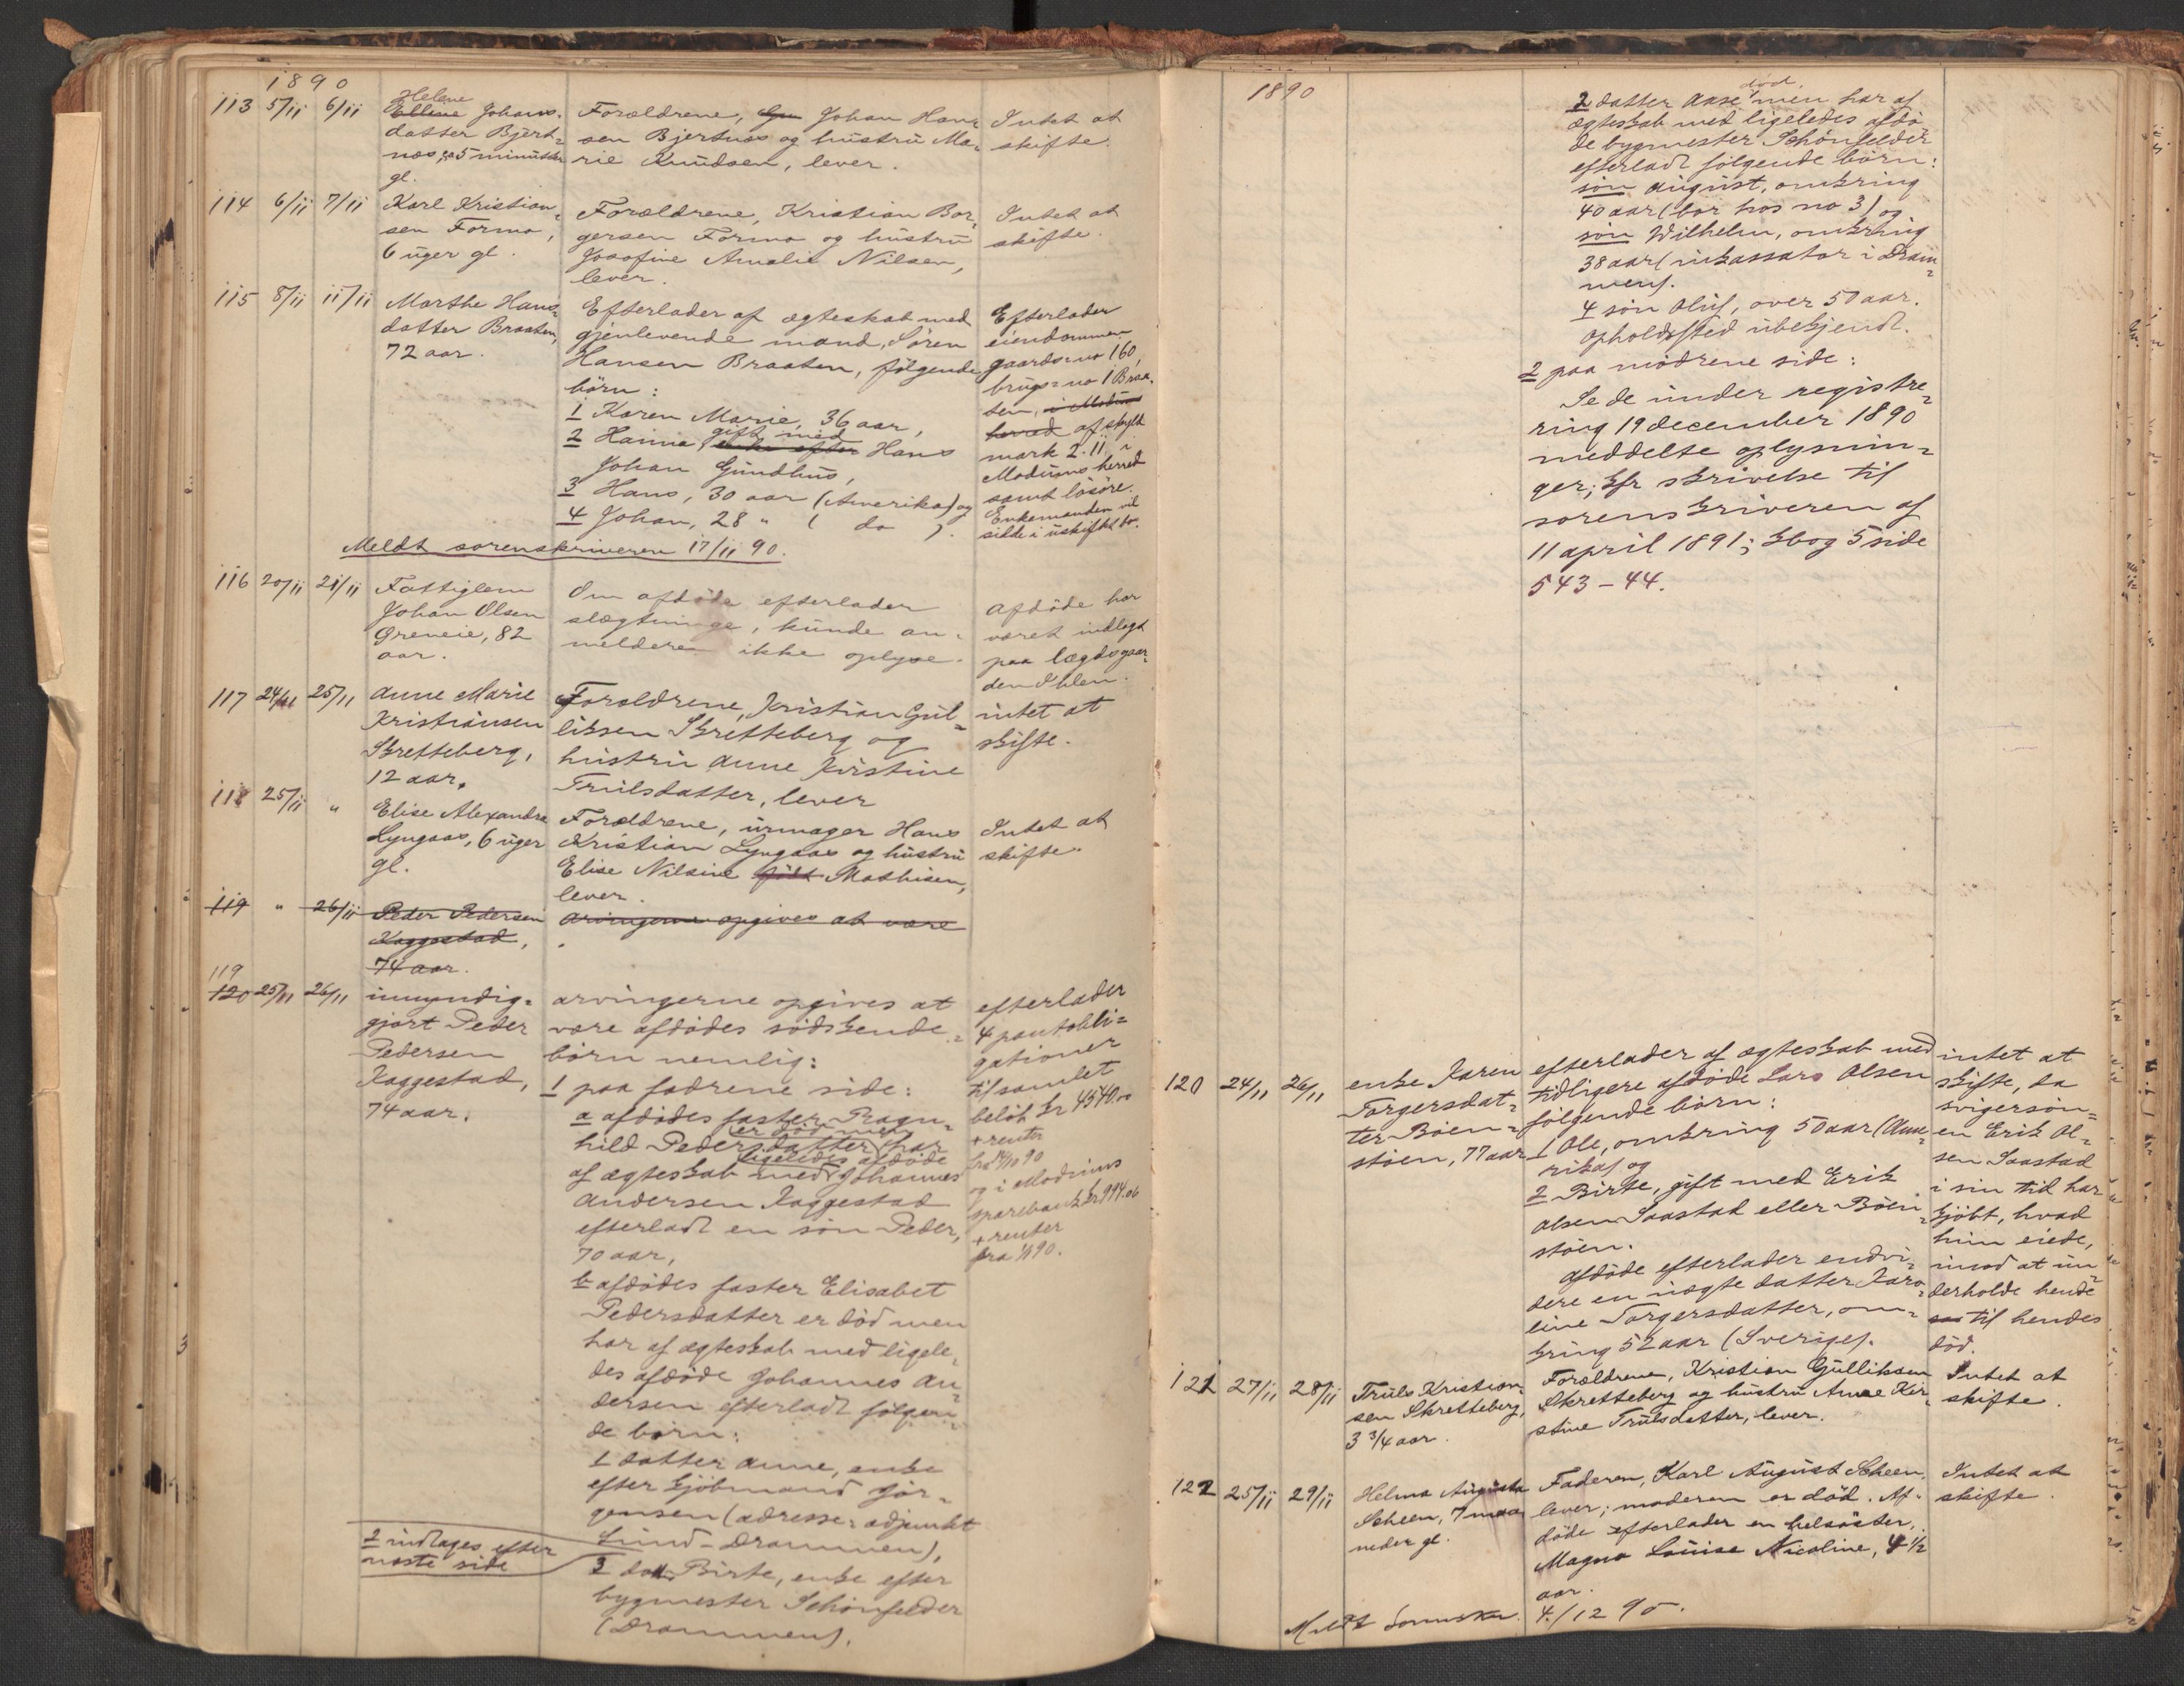 1890
113 5/11 6/11 Helene
Elline Johans-
datter Bjert-
næs, ca 5 minutter
gl.
Forældrene, Johan Han-
sen Bjertnæs og hustru Ma-
rie Knudsen, lever.
Intet at
skifte.
114 6/11 7/11 Karl Kristian-
sen Formo,
6 uger gl.
Forældrene, Kristian Bor-
gersen Formo og hustru
Josefine Amalie Nilsen,
lever.
Intet at
skifte.
115 8/11 11/11 Marthe Hans-
datter Braaten,
72 aar.
Efterlader af ægteskab med
gjenlevende mand, Sören
Hansen Braaten, følgende
börn:
1 Karen Marie, 36 aar,
gift med
2 Hanna, enke efter Hans
Johan Gundhus,
3 Hans, 30 aar (Amerika) og
4 Johan, 28 " ( do ).
Efterlader
eiendommen
gaards-no 160,
brugs-no 1 Braa-
ten, i Modum
herred af skyld
mark 2.11, i
Modums herred
samt lösöre.
Enkemanden vil
sidde i uskiftet bo.
Meldt sorenskriveren 17/11 90.
116 20/11 21/11 Fattiglem
Johan Olsen
Greneie, 82
aar.
Om afdöde efterlader
slægtninge, kunde an-
melderen ikke oplyse.
Afdöde har
været indlagt
paa lægdsgaar-
den Ihlen.
117 24/11 25/11 Anne Marie
Kristiansen
Skretteberg,
12 aar.
Forældrene, Kristian Gul-
liksen Skretteberg og
hustru Anne Kirstine
Trulsdatter, lever
intet at
skifte.
118 25/11 " Elise Alexandra
Lyngaas, 6 uger
gl.
Forældrene, urmager Hans
Kristian Lyngaas og hustru
Elise Nilsine født Mathisen,
lever.
Intet at
skifte.
119 " 26/11 Peder Pedersen
Kaggestad,
74 aar.
Arvingerne opgives at være
119
120 25/11 26/11 umyndig-
gjort Peder
Pedersen
Kaggestad,
74 aar.
arvingerne opgives at
være afdødes sødskende-
børn nemlig:
1 paa fædrene side:
a afdødes faster Ragn-
er død men
hild Pedersdatter har
ligeledes afdøde
af ægteskab med Johannes
Andersen Kaggestad
efterladt en søn Peder,
70 aar,
b afdødes faster Elisabet
Pedersdatter er død men
har af ægteskab med ligele-
des afdøde Johannes An-
dersen efterladt følgen-
de børn:
1 datter Anne, enke
efter kjøbmand Jør-
gensen (adresse: adjunkt
Lund - Drammen),
3 datt. Birte, enke efter
bygmester Schönfelder
(Drammen).
efterlader
4 pantobli-
gationer
til samlet
beløb kr 4540.00
+ renter
90
og i Modums
sparebank kr 994.06
+ renter
fra 90.
2 indtages efter
næste side
1890
død,
2 datter Aase men har af
ægteskab med ligeledes afdø-
de bygmester Schönfelder
efterladt følgende børn:
søn August, omkring
40 aar (bor hos no 3) og
søn Wilhelm, omkring
38 aar (inkassator i Dram-
men).
4 søn Oluf, over 50 aar.
Opholdssted ubekjendt.
2 paa mødrene side:
Se de under registre-
ring 19 december 1890
meddelte oplysnin-
ger; kfr skrivelse til
sorenskriveren af
11 april 1891; kbog 5 side
543-44.
120 24/11 26/11 enke Karen
Torgersdat-
ter Bøen-
støen, 77 aar
efterlader af ægteskab med
tidligere afdøde Lars Olsen
følgende børn:
1 Ole, omkring 50 aar (Ame-
rika) og
2 Birte, gift med Erik
Olsen Saastad eller Bøen-
støen.
Afdøde efterlader endvi-
dere en uægte datter Karo-
line Torgersdatter, om-
kring 52 aar (Sverige).
intet at
skifte, da
svigersøn-
en Erik Ol-
sen Saastad
i sin tid har
kjøbt, hvad
hun eiede,
imod at un-
derholde hende
til hendes
død.
121 27/11 28/11 Truls Kristian-
sen Skretteberg,
3 3/4 aar.
Forældrene, Kristian Gulliksen
Skretteberg og hustru Anne Kir-
stine Trulsdatter, lever.
Intet at
skifte.
122 25/11 29/11 Helma Augusta
Scheen, 7 maa-
neder gl.
Faderen, Karl August Scheen,
lever; moderen er död. Af-
döde efterlader en helsöster,
Magna Louise Nicoline, 4 1/2
aar.
Intet at
skifte.
Meldt Sorenskr. 4/12 90.